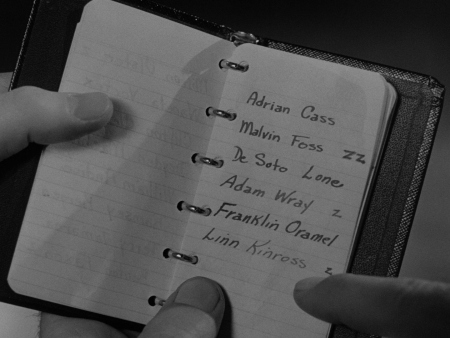 Adrian Cass
Malvin Foss zz
De Soto Lone
Adam Wray z
Franklin Oramel
Linn Kinross z